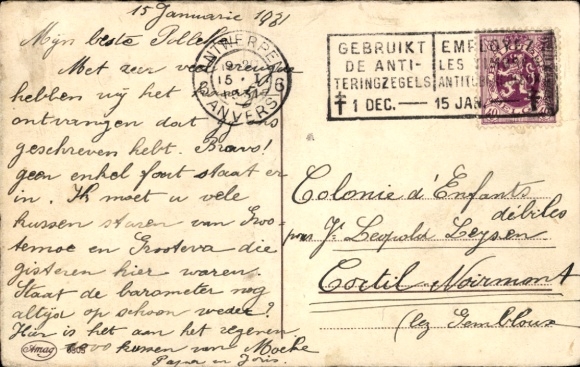 15 Januarie 1931
Mijn beste Polleke
Met zeer veel
hebben wij het
ontvangen dat gij ons
geschreven hebt. Bravo!
geen enkel fout staat er
in. Ik moet u vele
kussen sturen van Groo-
temoe en Grooteva die
gisteren hier waren.
Staat de barometer nog
altijd op schoon weder?
Hier is het aan het regenen
1000 kussen van Moeke
Papa en Joris.
Amag
ANTWERPEN
6 15 I 6
ANVERS
GEBRUIKT
DE ANTI-
TERINGZEGELS
1 DEC. — 15 JAN.
EMPLOYEZ
LES
ANTITUB
Colonie d'Enfants
débiles
pour Jr Leopold Leysen
Cortil Noirmont
(lez Gembloux